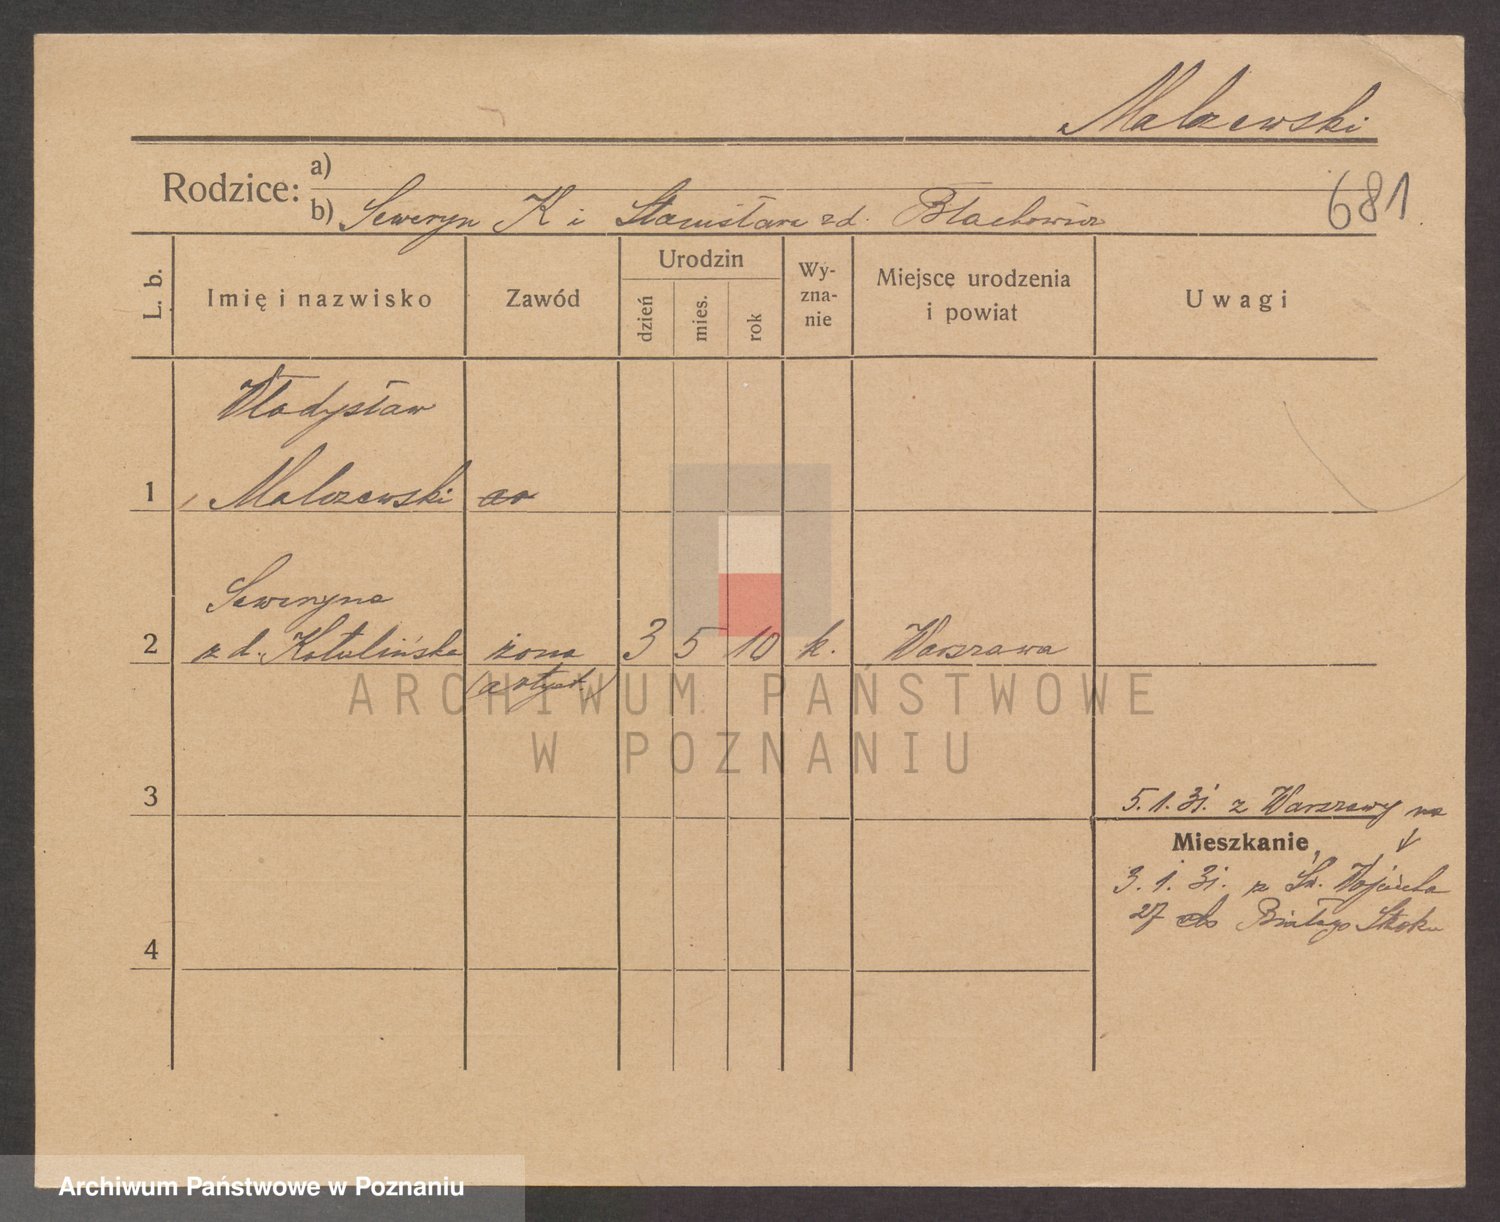 Malczewski
Rodzice: a)
b) Seweryn K i Stanisława zd. Błachowicz
681
L. b.
Imię i nazwisko
Zawód
Urodzin
dzień
mies.
rok
Wy-
zna-
nie
Miejsce urodzenia
i powiat
Uwagi
Władysław
1 Malczewski
Seweryna
2 z d. Kotulińska żona 3 5 10 k. Warszawa
(artyst.)
ARCHIWUM PAŃSTWOWE
W POZNANIU
3
5.1.31. z Warszawy na
Mieszkanie
3.1.31. z Św. Wojciecha
27 do Białego Stoku
4
Archiwum Państwowe w Poznaniu